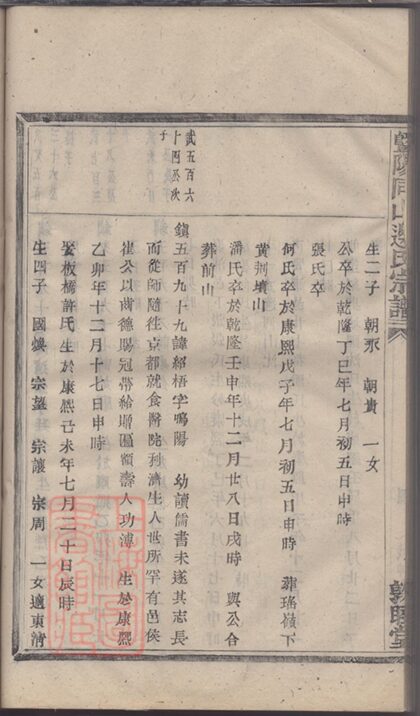 暨陽同山邊氏宗譜
敦睦堂
生二子 朝永 朝貴 一女
公卒於乾隆丁巳年七月初五日申時
張氏卒
何氏卒於康熙戊子年七月初五日申時 葬珤嶺下
黄州墳山
潘氏卒於乾隆壬申年十二月廿八日戌時 與公合
葬前山
武五百六
十四公次
子
鎮五百九十九諱紹梧字鳴陽 幼讀儒書未遂其志長
而從師隨往京都就食醫院利濟生人世所罕有邑侯
崔公以齒德賜冠帶給增匾額壽人功溥 生於康熙
乙卯年十二月十七日申時
娶板橋許氏生於康熙己未年七月二十日辰時
生四子 國煥 宗望 宗讓 宗周 一女適東清